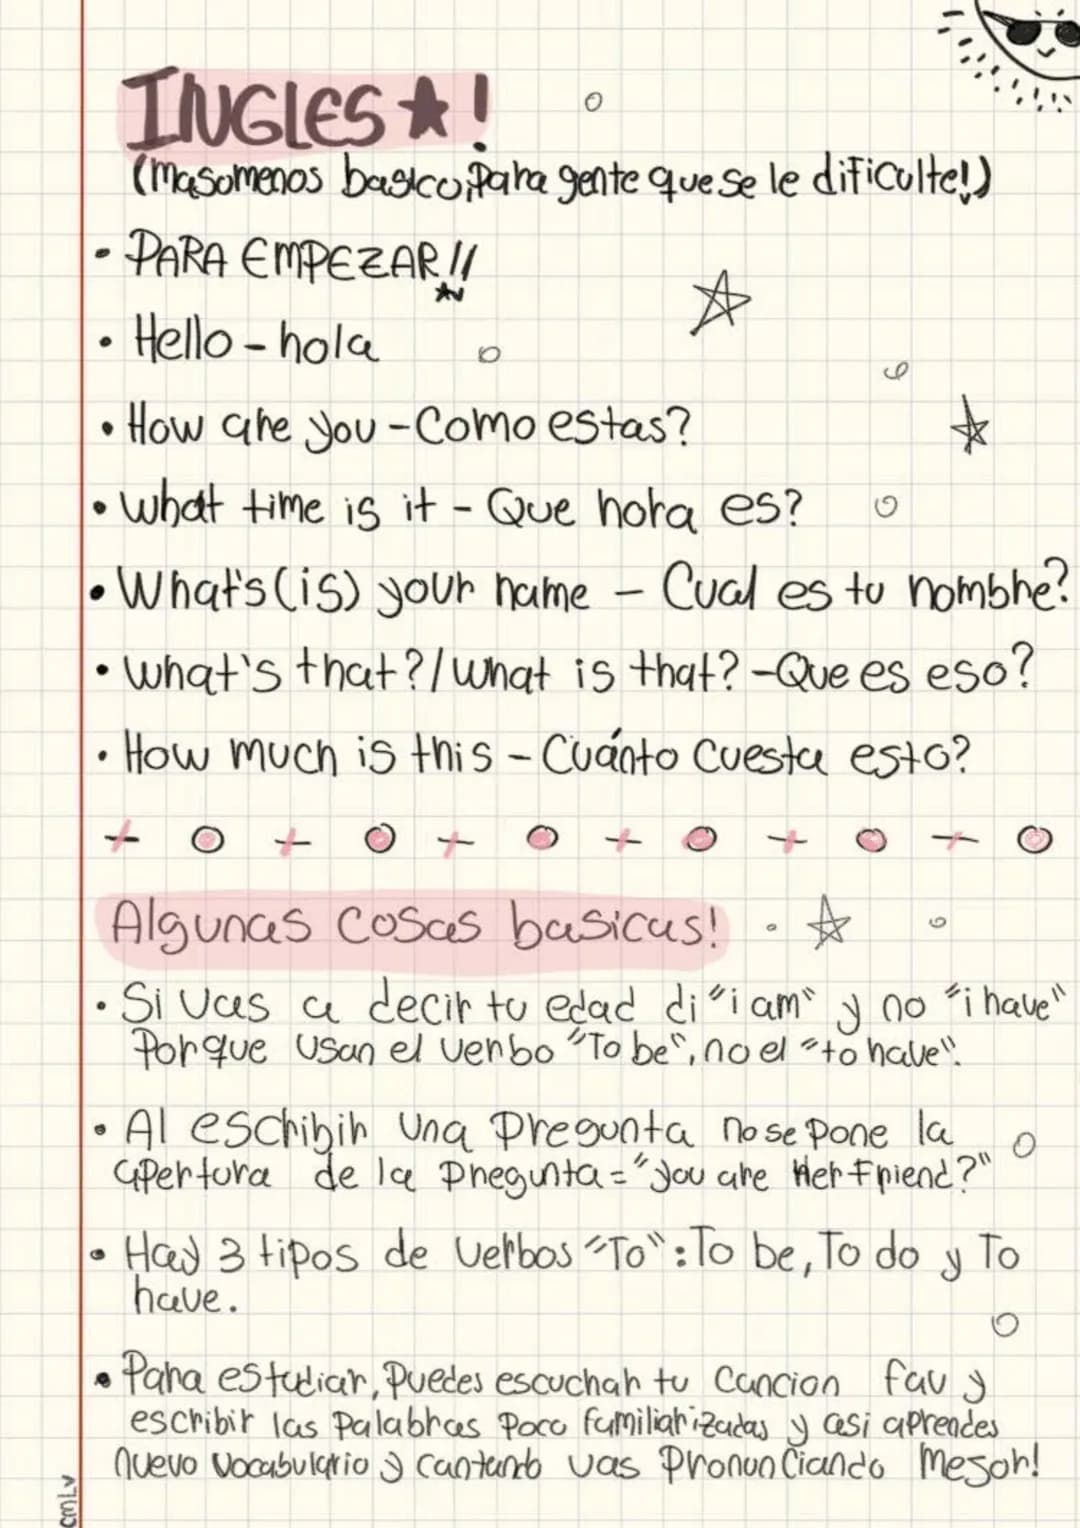 INGLES★!
(masomenos basico, Para gente que se le dificulte!)
• PARA EMPEZAR!!
• Hello - hola
• How are you - Como estas?
• What time is it - Que hora es?
• What's (is) your name - Cual es tu nombre?
• What's that? / What is that? - Que es eso?
• How much is this - Cuánto Cuesta esto?
Algunas cosas basicas!
• Si vas a decir tu edad di "i am" y no "i have"
Porque usan el verbo "To be", no el "to have".
• Al escribir una Pregunta no se pone la
apertura de la pregunta = "you are Her Friend?"
• Hay 3 tipos de verbos "To": To be, To do y To
have.
• Para estudiar, Puedes escuchar tu Cancion fav y
escribir las Palabras Poco familiarizadas y asi aprendes
nuevo vocabulario y cantando vas Pronunciando Mejor!
CMLV